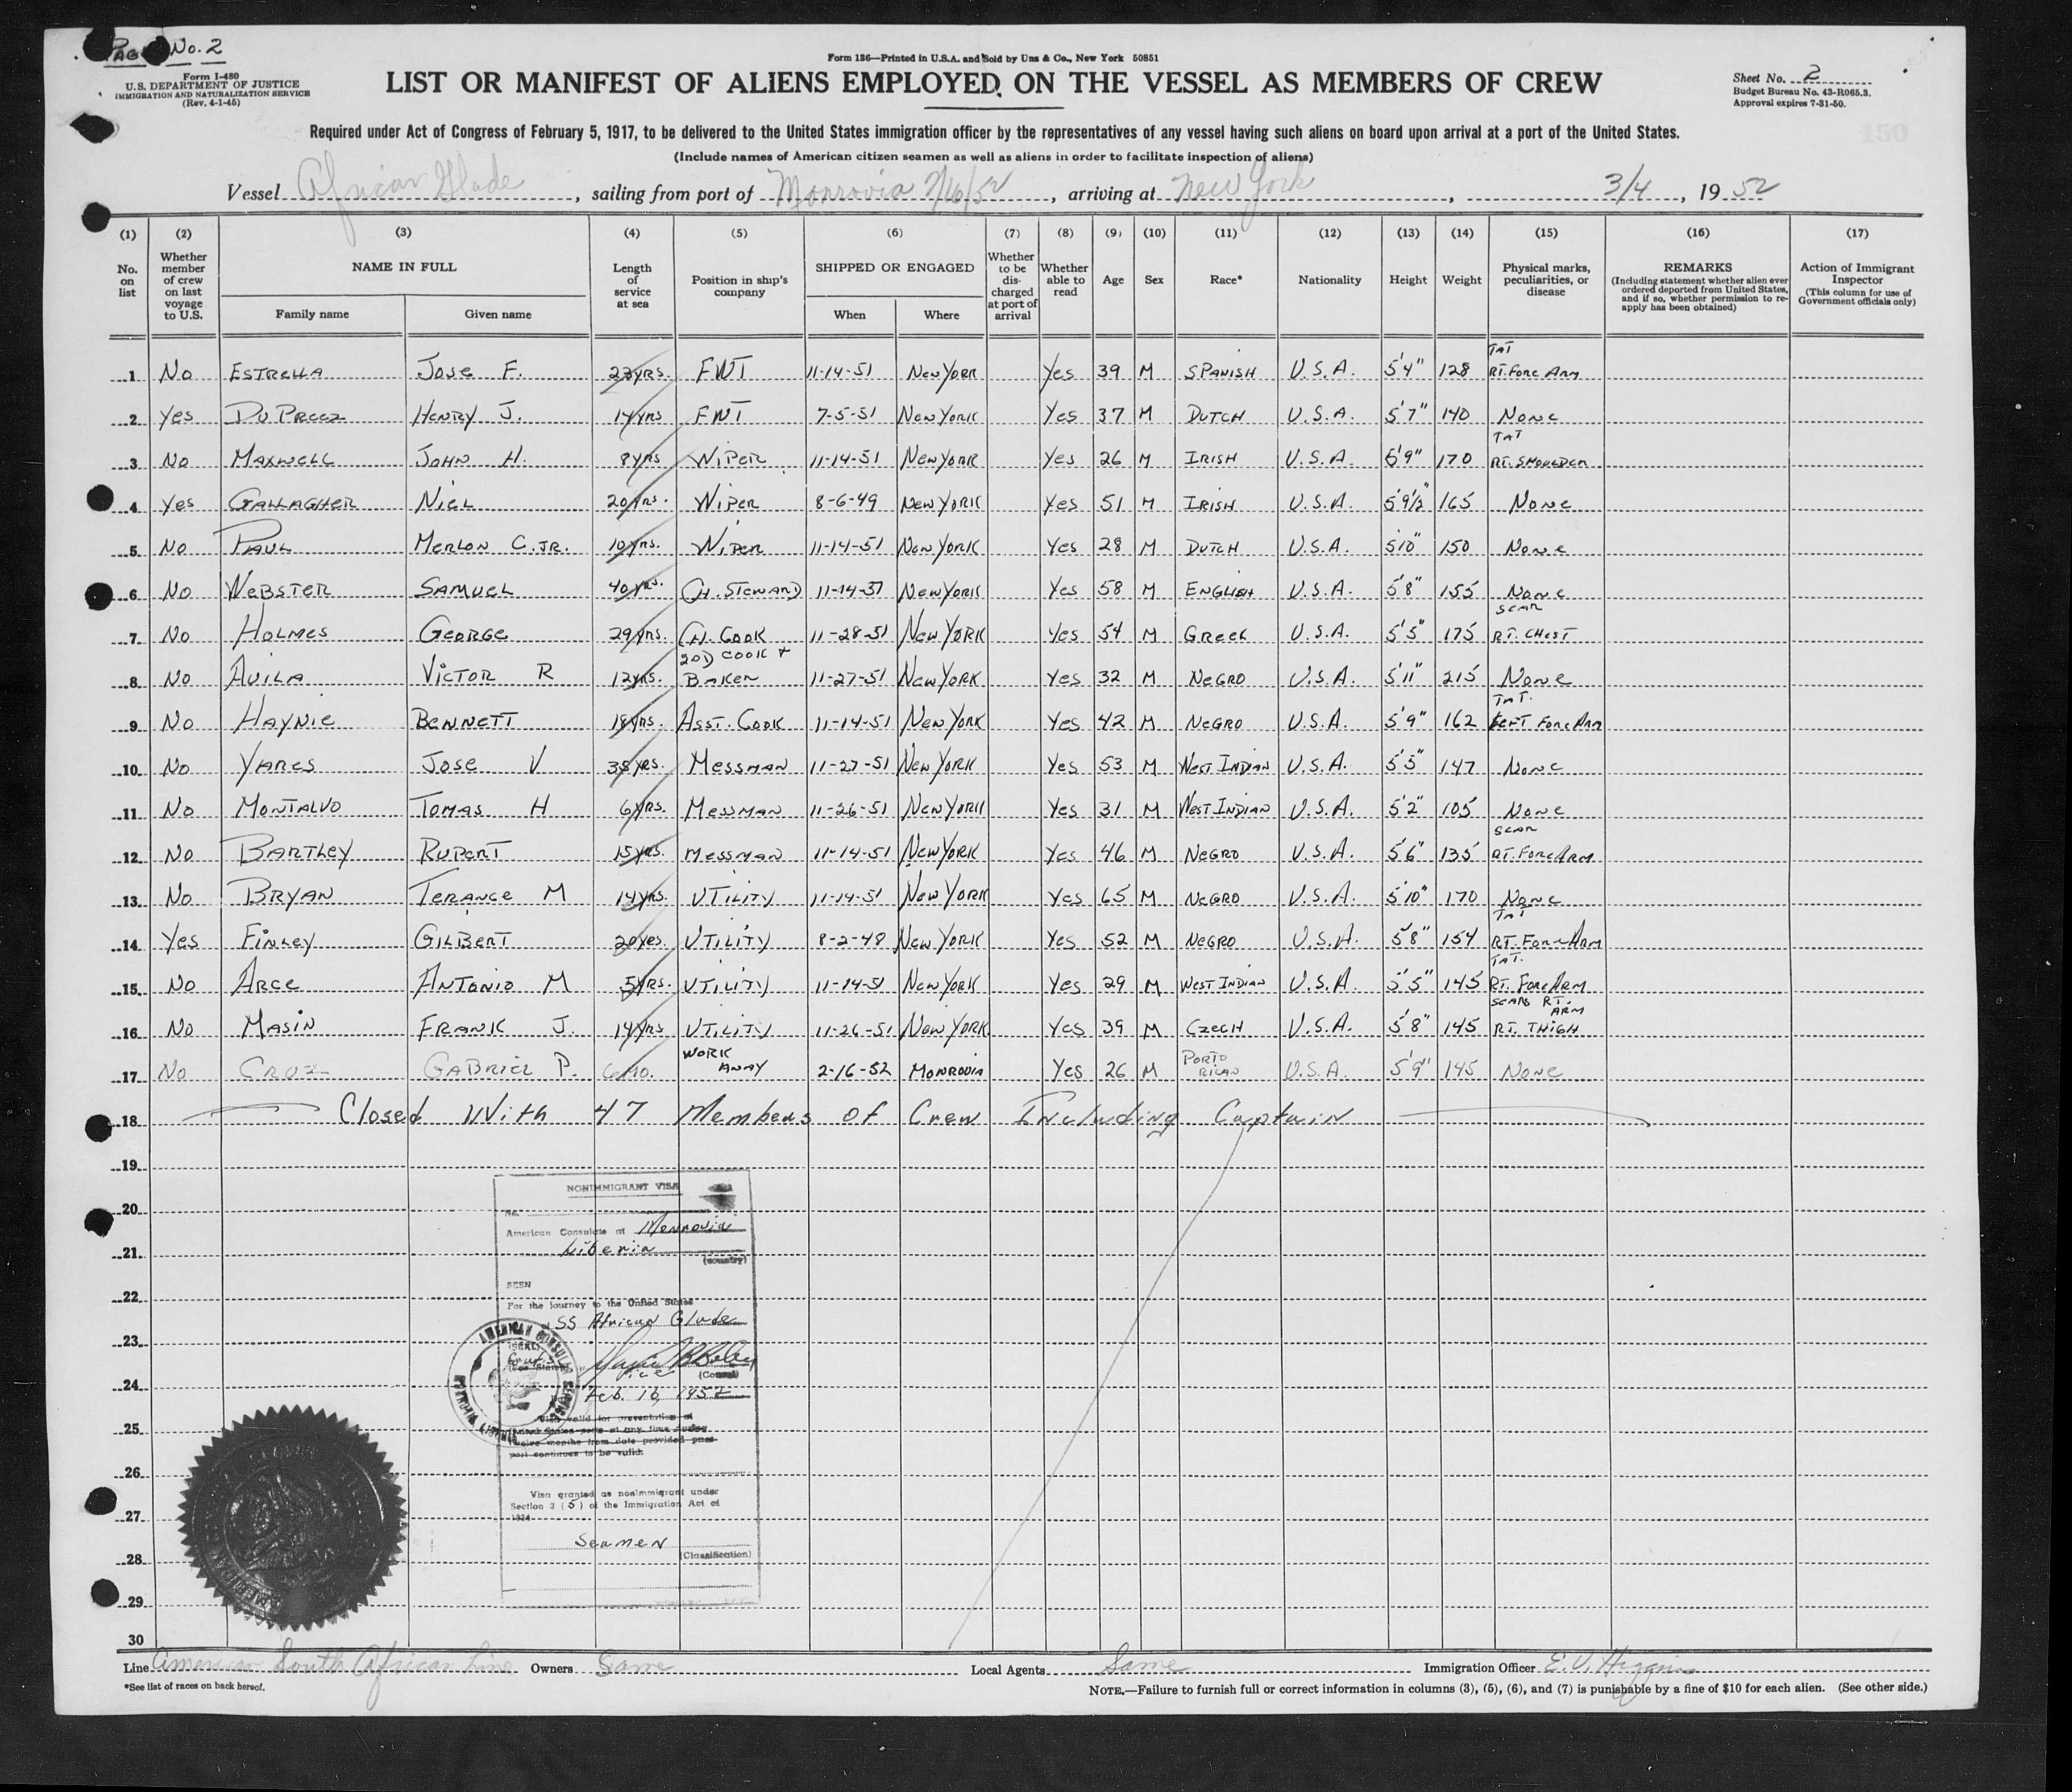 Page No. 2
Form I-480
U.S. DEPARTMENT OF JUSTICE
IMMIGRATION AND NATURALIZATION SERVICE
(Rev. 4-1-45)
Form 136—Printed in U.S.A. and Sold by Unz & Co., New York 50851
LIST OR MANIFEST OF ALIENS EMPLOYED ON THE VESSEL AS MEMBERS OF CREW
Sheet No. 2
Budget Bureau No. 43-R065.3.
Approval expires 7-31-50.
Required under Act of Congress of February 5, 1917, to be delivered to the United States immigration officer by the representatives of any vessel having such aliens on board upon arrival at a port of the United States.
150
(Include names of American citizen seamen as well as aliens in order to facilitate inspection of aliens)
Vessel African Glade, sailing from port of Monrovia 2/16/52, arriving at New York, 3/4, 1952
(1) (2) (3) (4) (5) (6) (7) (8) (9) (10) (11) (12) (13) (14) (15) (16) (17)
No. on list
Whether member of crew on last voyage to U.S.
NAME IN FULL
Family name
Given name
Length of service at sea
Position in ship's company
SHIPPED OR ENGAGED
When
Where
Whether to be discharged at port of arrival
Whether able to read
Age
Sex
Race*
Nationality
Height
Weight
Physical marks, peculiarities, or disease
REMARKS
(Including statement whether alien ever ordered deported from United States, and if so, whether permission to re-apply has been obtained)
Action of Immigrant Inspector
(This column for use of Government officials only)
1 No ESTRELLA JOSE F. 23 YRS. FWT 11-14-51 NEW YORK Yes 39 M SPANISH U.S.A. 5'4" 128 TAT RT. FORE ARM
2 Yes DUPREEZ HENRY J. 14 YRS FWT 7-5-51 NEW YORK Yes 37 M DUTCH U.S.A. 5'7" 140 NONE
3 No MAXWELL JOHN H. 8 YRS WIPER 11-14-51 NEW YORK Yes 26 M IRISH U.S.A. 5'9" 170 TAT RT. SHOULDER
4 Yes GALLAGHER NIEL 20 YRS. WIPER 8-6-49 NEW YORK Yes 51 M IRISH U.S.A. 5'9½" 165 NONE
5 No PAUL MERLON C. JR. 10 YRS. WIPER 11-14-51 NEW YORK Yes 28 M DUTCH U.S.A. 5'10" 150 NONE
6 No WEBSTER SAMUEL 40 YRS. CH. STEWARD 11-14-51 NEW YORK Yes 58 M ENGLISH U.S.A. 5'8" 155 NONE
7 No HOLMES GEORGE 29 YRS. CH. COOK 11-28-51 NEW YORK Yes 54 M GREEK U.S.A. 5'5" 175 SCAR RT. CHEST
8 No AVILA VICTOR R 12 YRS. 2ND COOK + BAKER 11-27-51 NEW YORK Yes 32 M NEGRO U.S.A. 5'11" 215 NONE
9 No HAYNIE BENNETT 18 YRS. ASST. COOK 11-14-51 NEW YORK Yes 42 M NEGRO U.S.A. 5'9" 162 TAT. LEFT FORE ARM
10 No YARES JOSE V 38 YRS. MESSMAN 11-27-51 NEW YORK Yes 53 M WEST INDIAN U.S.A. 5'5" 147 NONE
11 No MONTALVO TOMAS H 6 YRS. MESSMAN 11-26-51 NEW YORK Yes 31 M WEST INDIAN U.S.A. 5'2" 105 NONE
12 No BARTLEY RUPERT 15 YRS. MESSMAN 11-14-51 NEW YORK Yes 46 M NEGRO U.S.A. 5'6" 135 SCAR RT. FORE ARM
13 No BRYAN TERANCE M 14 YRS. UTILITY 11-14-51 NEW YORK Yes 65 M NEGRO U.S.A. 5'10" 170 NONE
14 Yes FINLEY GILBERT 20 YRS. UTILITY 8-2-48 NEW YORK Yes 52 M NEGRO U.S.A. 5'8" 154 TAT RT. FORE ARM
15 No ARCE ANTONIO M 5 YRS. UTILITY 11-14-51 NEW YORK Yes 29 M WEST INDIAN U.S.A. 5'5" 145 TAT. RT. FORE ARM
16 No MASIN FRANK J. 14 YRS UTILITY 11-26-51 NEW YORK Yes 39 M CZECH U.S.A. 5'8" 145 SCARS RT. ARM RT. THIGH
17 No CRUZ GABRIEL P. 6 MO. WORK AWAY 2-16-52 MONROVIA Yes 26 M PORTO RICAN U.S.A. 5'9" 145 NONE
18 Closed With 47 Members of Crew Including Captain
19
20
21
22
23
24
25
26
27
28
29
30
NONIMMIGRANT VISA
No.
American Consulate at Monrovia
Liberia
(country)
SEEN
For the journey to the United States
SS African Glade
(SEAL)
Vice
(Consul)
Feb. 16, 1952
Visa valid for presentation at
United States ports at any time during
twelve months from date provided pass-
port continues to be valid.
Visa granted as nonimmigrant under
Section 3 (5) of the Immigration Act of
1924
Seamen
(Classification)
AMERICAN CONSULAR SERVICE
MONROVIA LIBERIA
Line American South African Line Owners Same Local Agents Same Immigration Officer E.V. Higgins
*See list of races on back hereof.
NOTE.—Failure to furnish full or correct information in columns (3), (5), (6), and (7) is punishable by a fine of $10 for each alien. (See other side.)